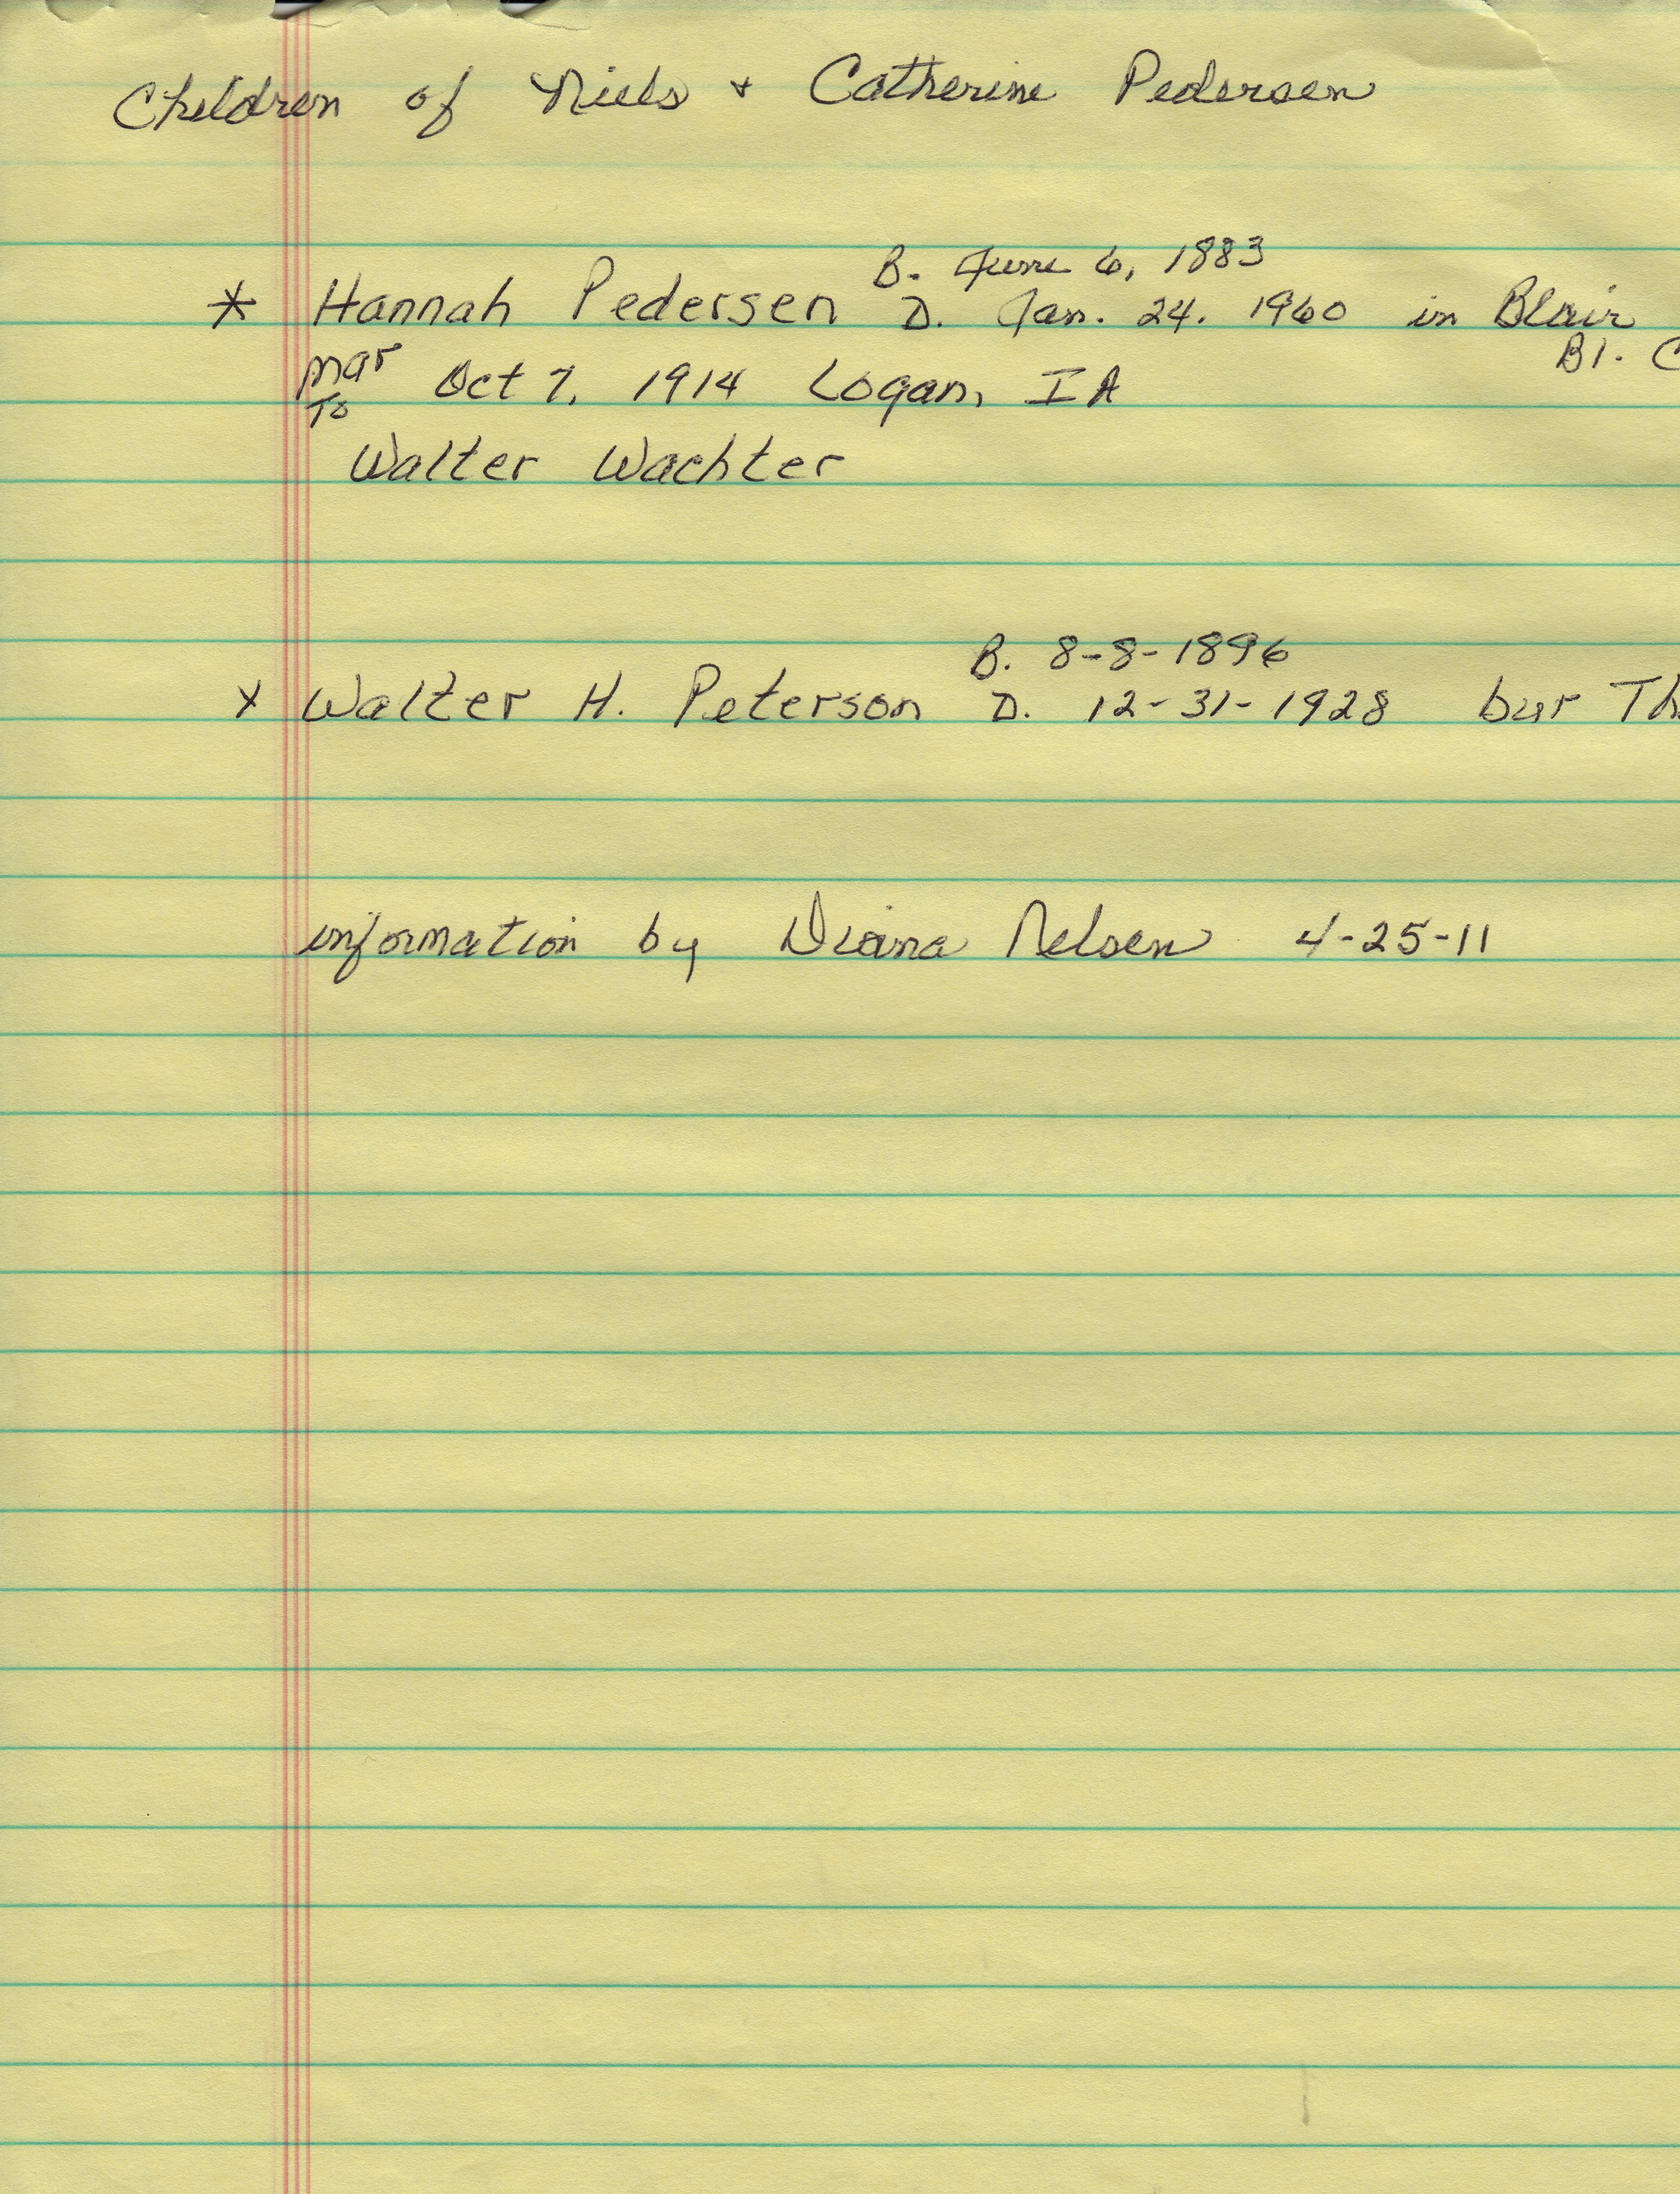 Children of Niels + Catherine Pedersen
B. June 6, 1883
* Hannah Pedersen D. Jan. 24. 1960 in Blair
Bl. C
mar Oct 7, 1914 Logan, IA
To
Walter Wachter
B. 8-8-1896
x Walter H. Peterson D. 12-31-1928 bur Th
information by Diana Nelsen 4-25-11